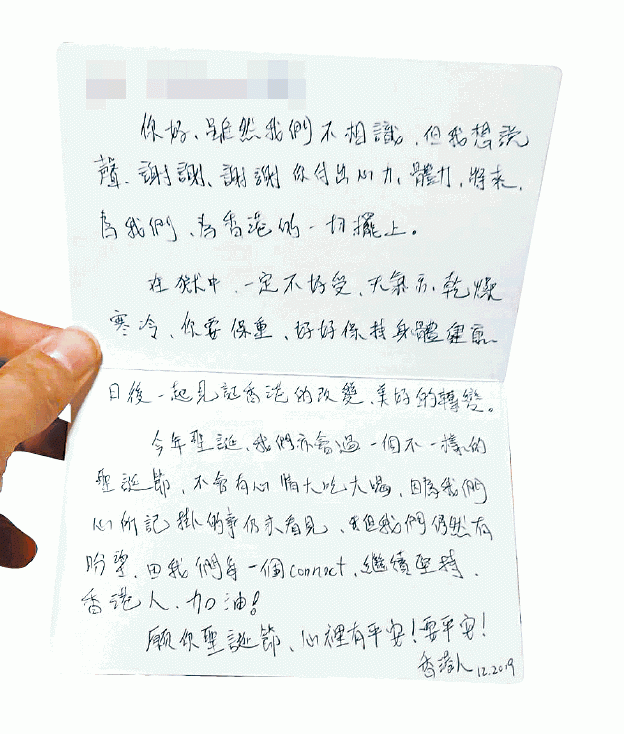 你好、雖然我們不相識，但我想說
聲、謝謝、謝謝你付出心力，體力，將來，
為我們、為香港的一切擺上。
在獄中、一定不好受、天氣亦乾燥
寒冷、你要保重、好好保持身體健康
日後一起見証香港的改變、美好的轉變。
今年聖誕、我們亦會過一個不一樣的
聖誕節，不會有心情大吃大喝，因為我們
心所記掛的事仍未看見、但我們仍然有
盼望，由我們每一個connect，繼續堅持，
香港人，加油！
願你聖誕節、心裡有平安！要平安！
香港人 12.2019